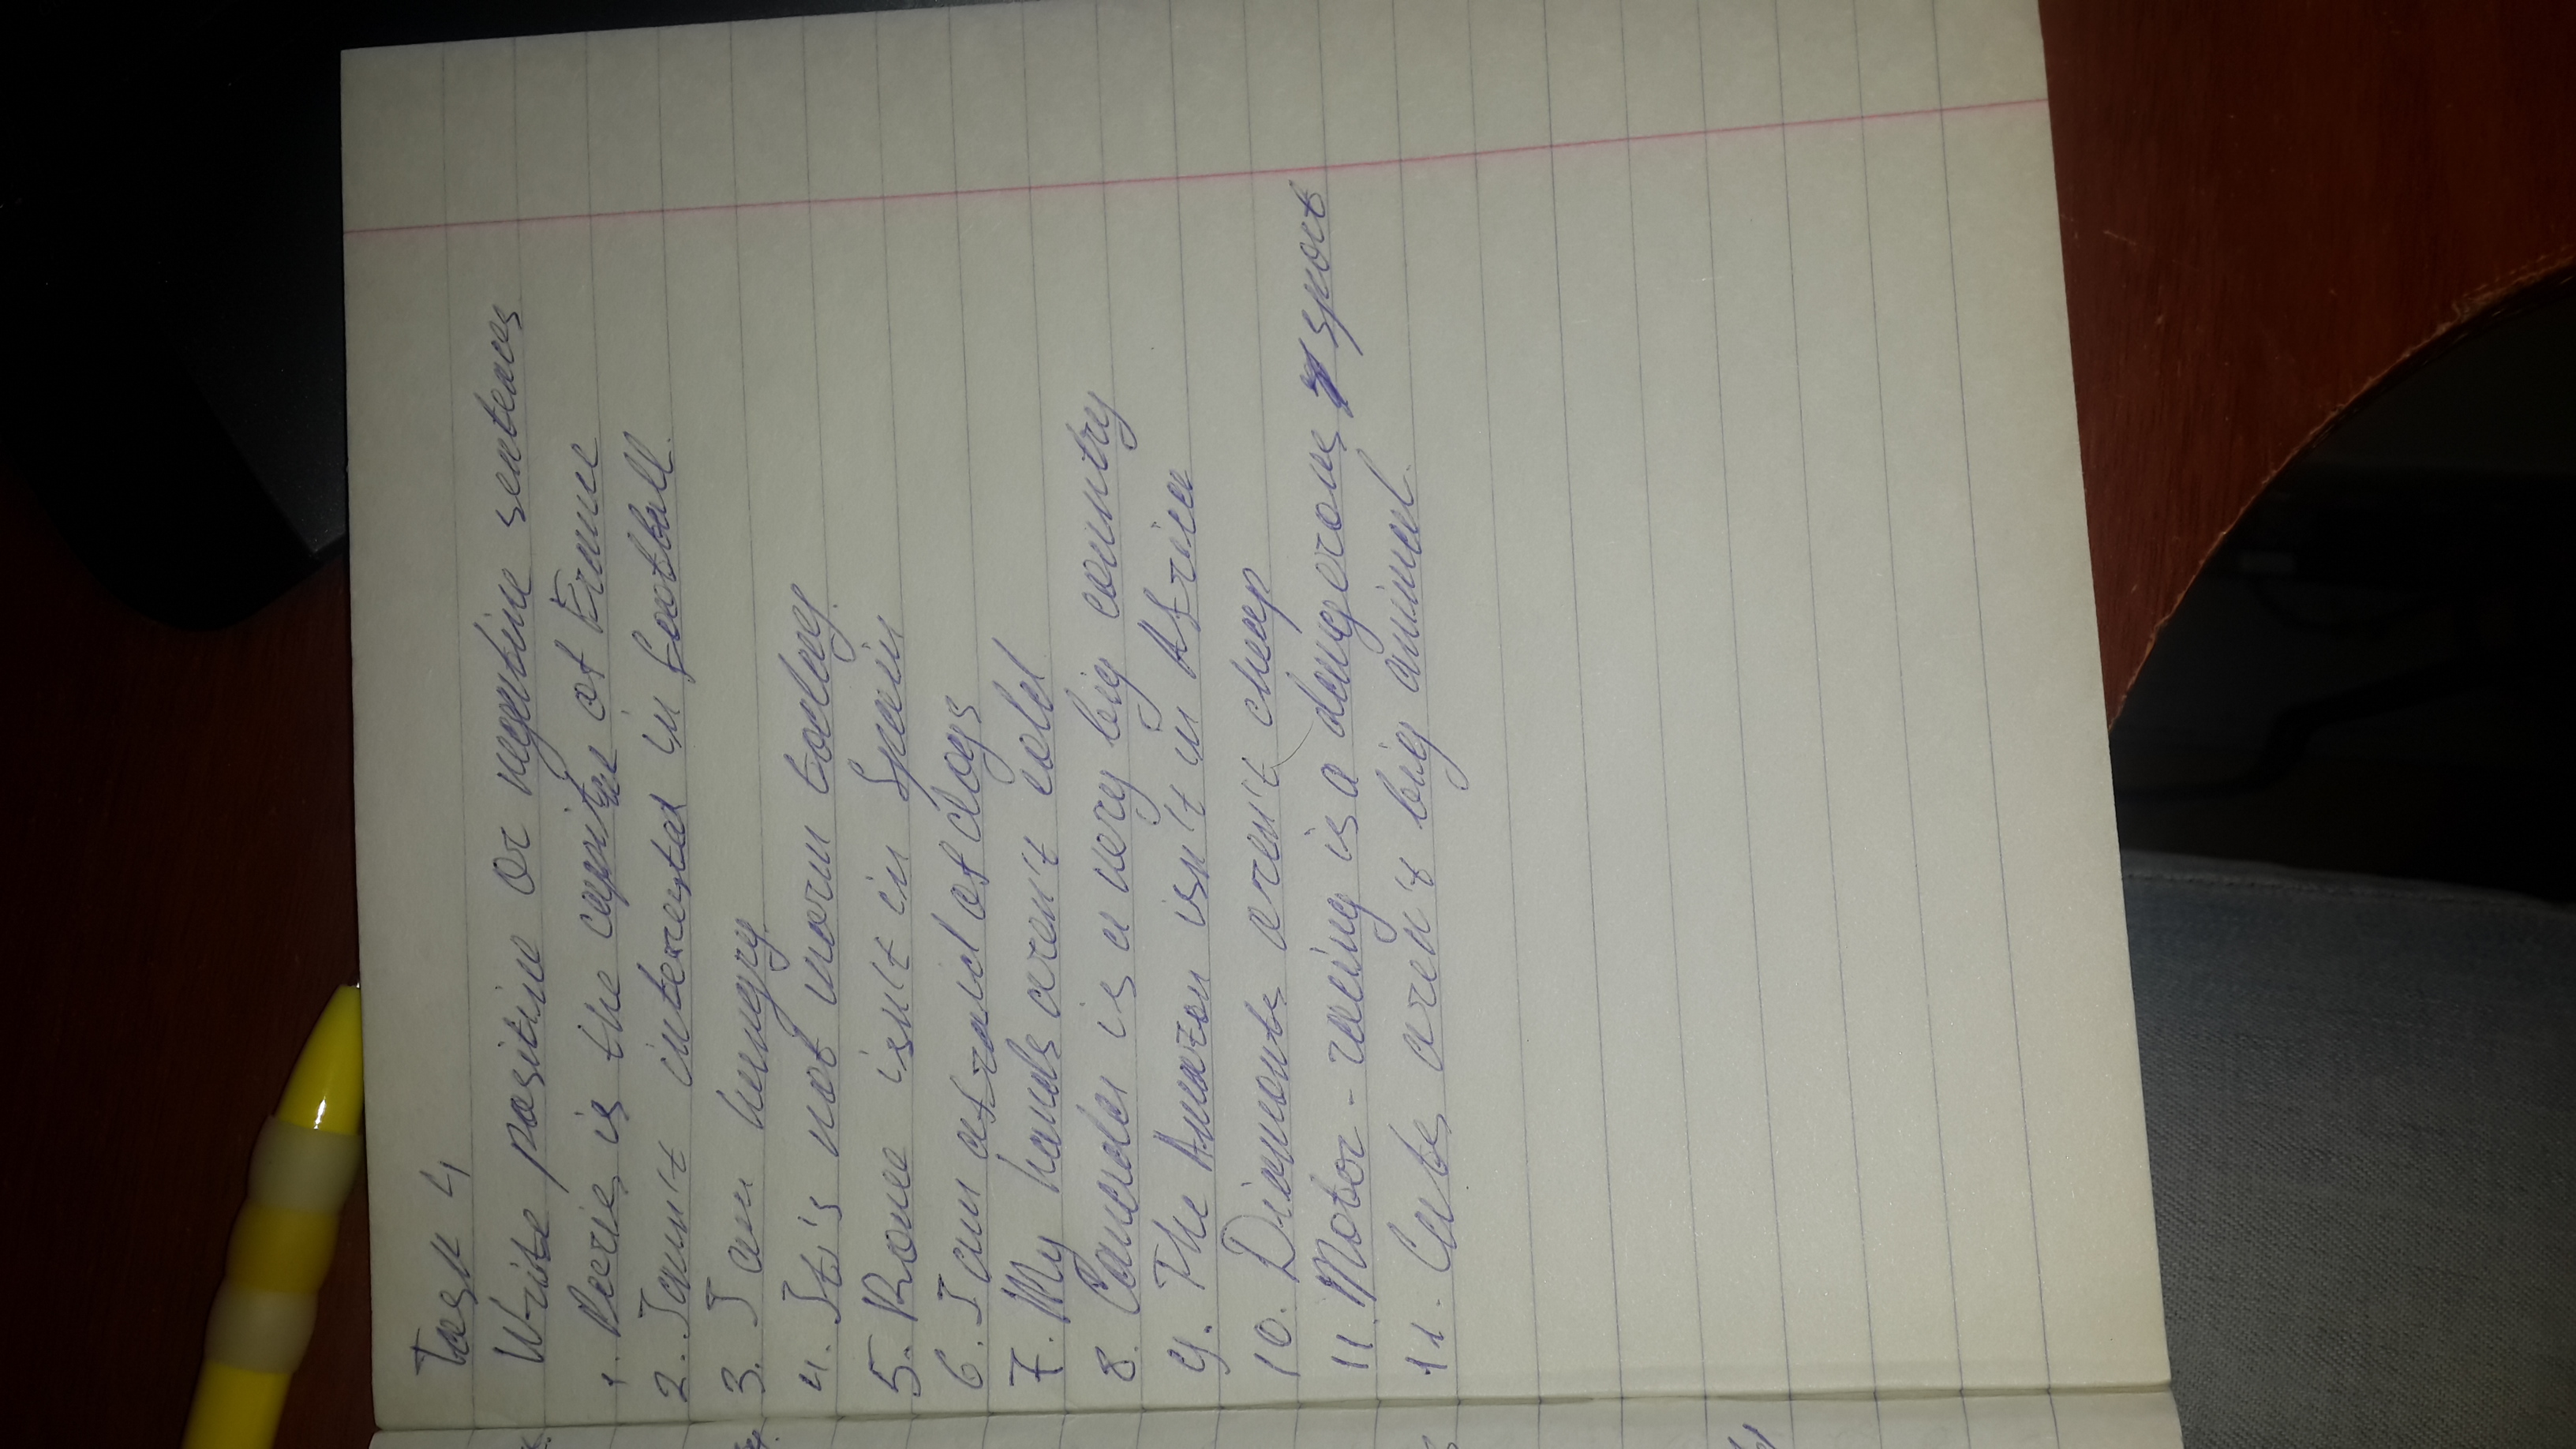 Task 4
Write positive or negative sentences
1. Paris is the capital of France
2. I amn't interested in football.
3. I am hungry.
4. It's not worm today.
5. Rome isn't in Spain
6. I am afraid of dogs
7. My hands aren't cold
8. Canada is a very big country
9. The Amazon isn't in Africa
10. Diamonts aren't cheap
11. Motor-racing is a dangerous sport
11. Cats aren't big animal.